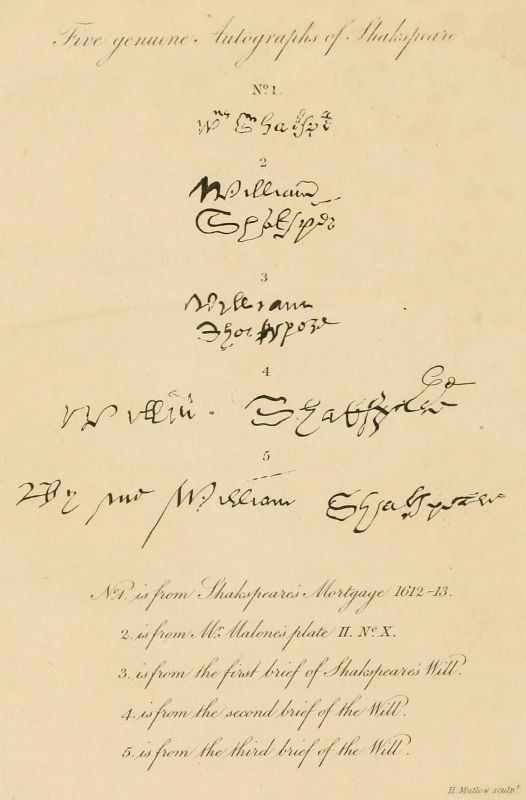 Five genuine Autographs of Shakspeare.
No. 1.
Wm Shakspe
2
William
Shakspe
3
William
Shakspere
4
Willm Shakspere
5
By me William Shakspeare
No. 1. is from Shakspeare's Mortgage 1612-13.
2. is from Mr. Malone's plate II. No. X.
3. is from the first brief of Shakspeare's Will.
4. is from the second brief of the Will.
5. is from the third brief of the Will.
H. Mutlow sculpt.